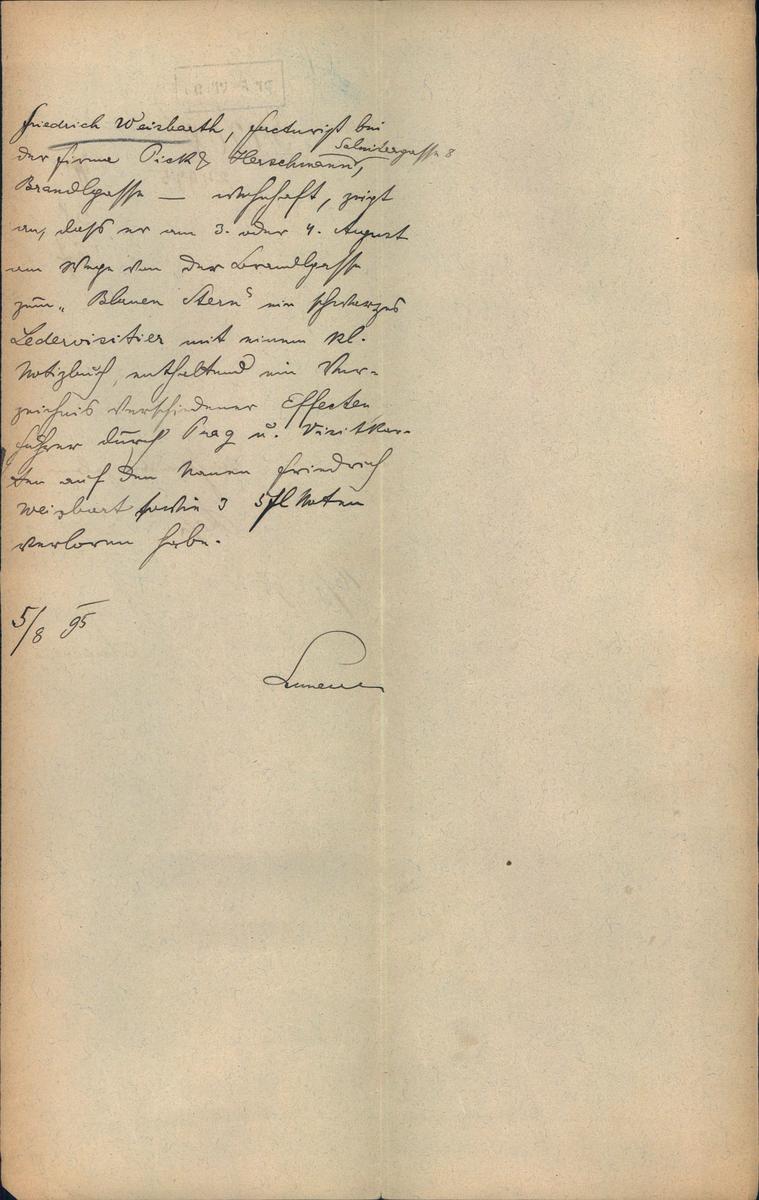 Friedrich Weisbarth, Facturist bei
Salmitergasse 8
der Firma Pick & Herschmann,
Brandlgasse — wohnhaft, zeigt
an, daß er am 3. oder 4. August
am Wege von der Brandlgasse
zum „Blauen Stern“ ein schwarzes
Ledervisitier mit einem kl.
Notizbuch, enthaltend ein Ver-
zeichnis verschiedener Effecten
Führer durch Prag u. Visitkar-
ten auf den Namen Friedrich
Weisbart sowie 3 5fl Noten
verloren habe.
5/8 95